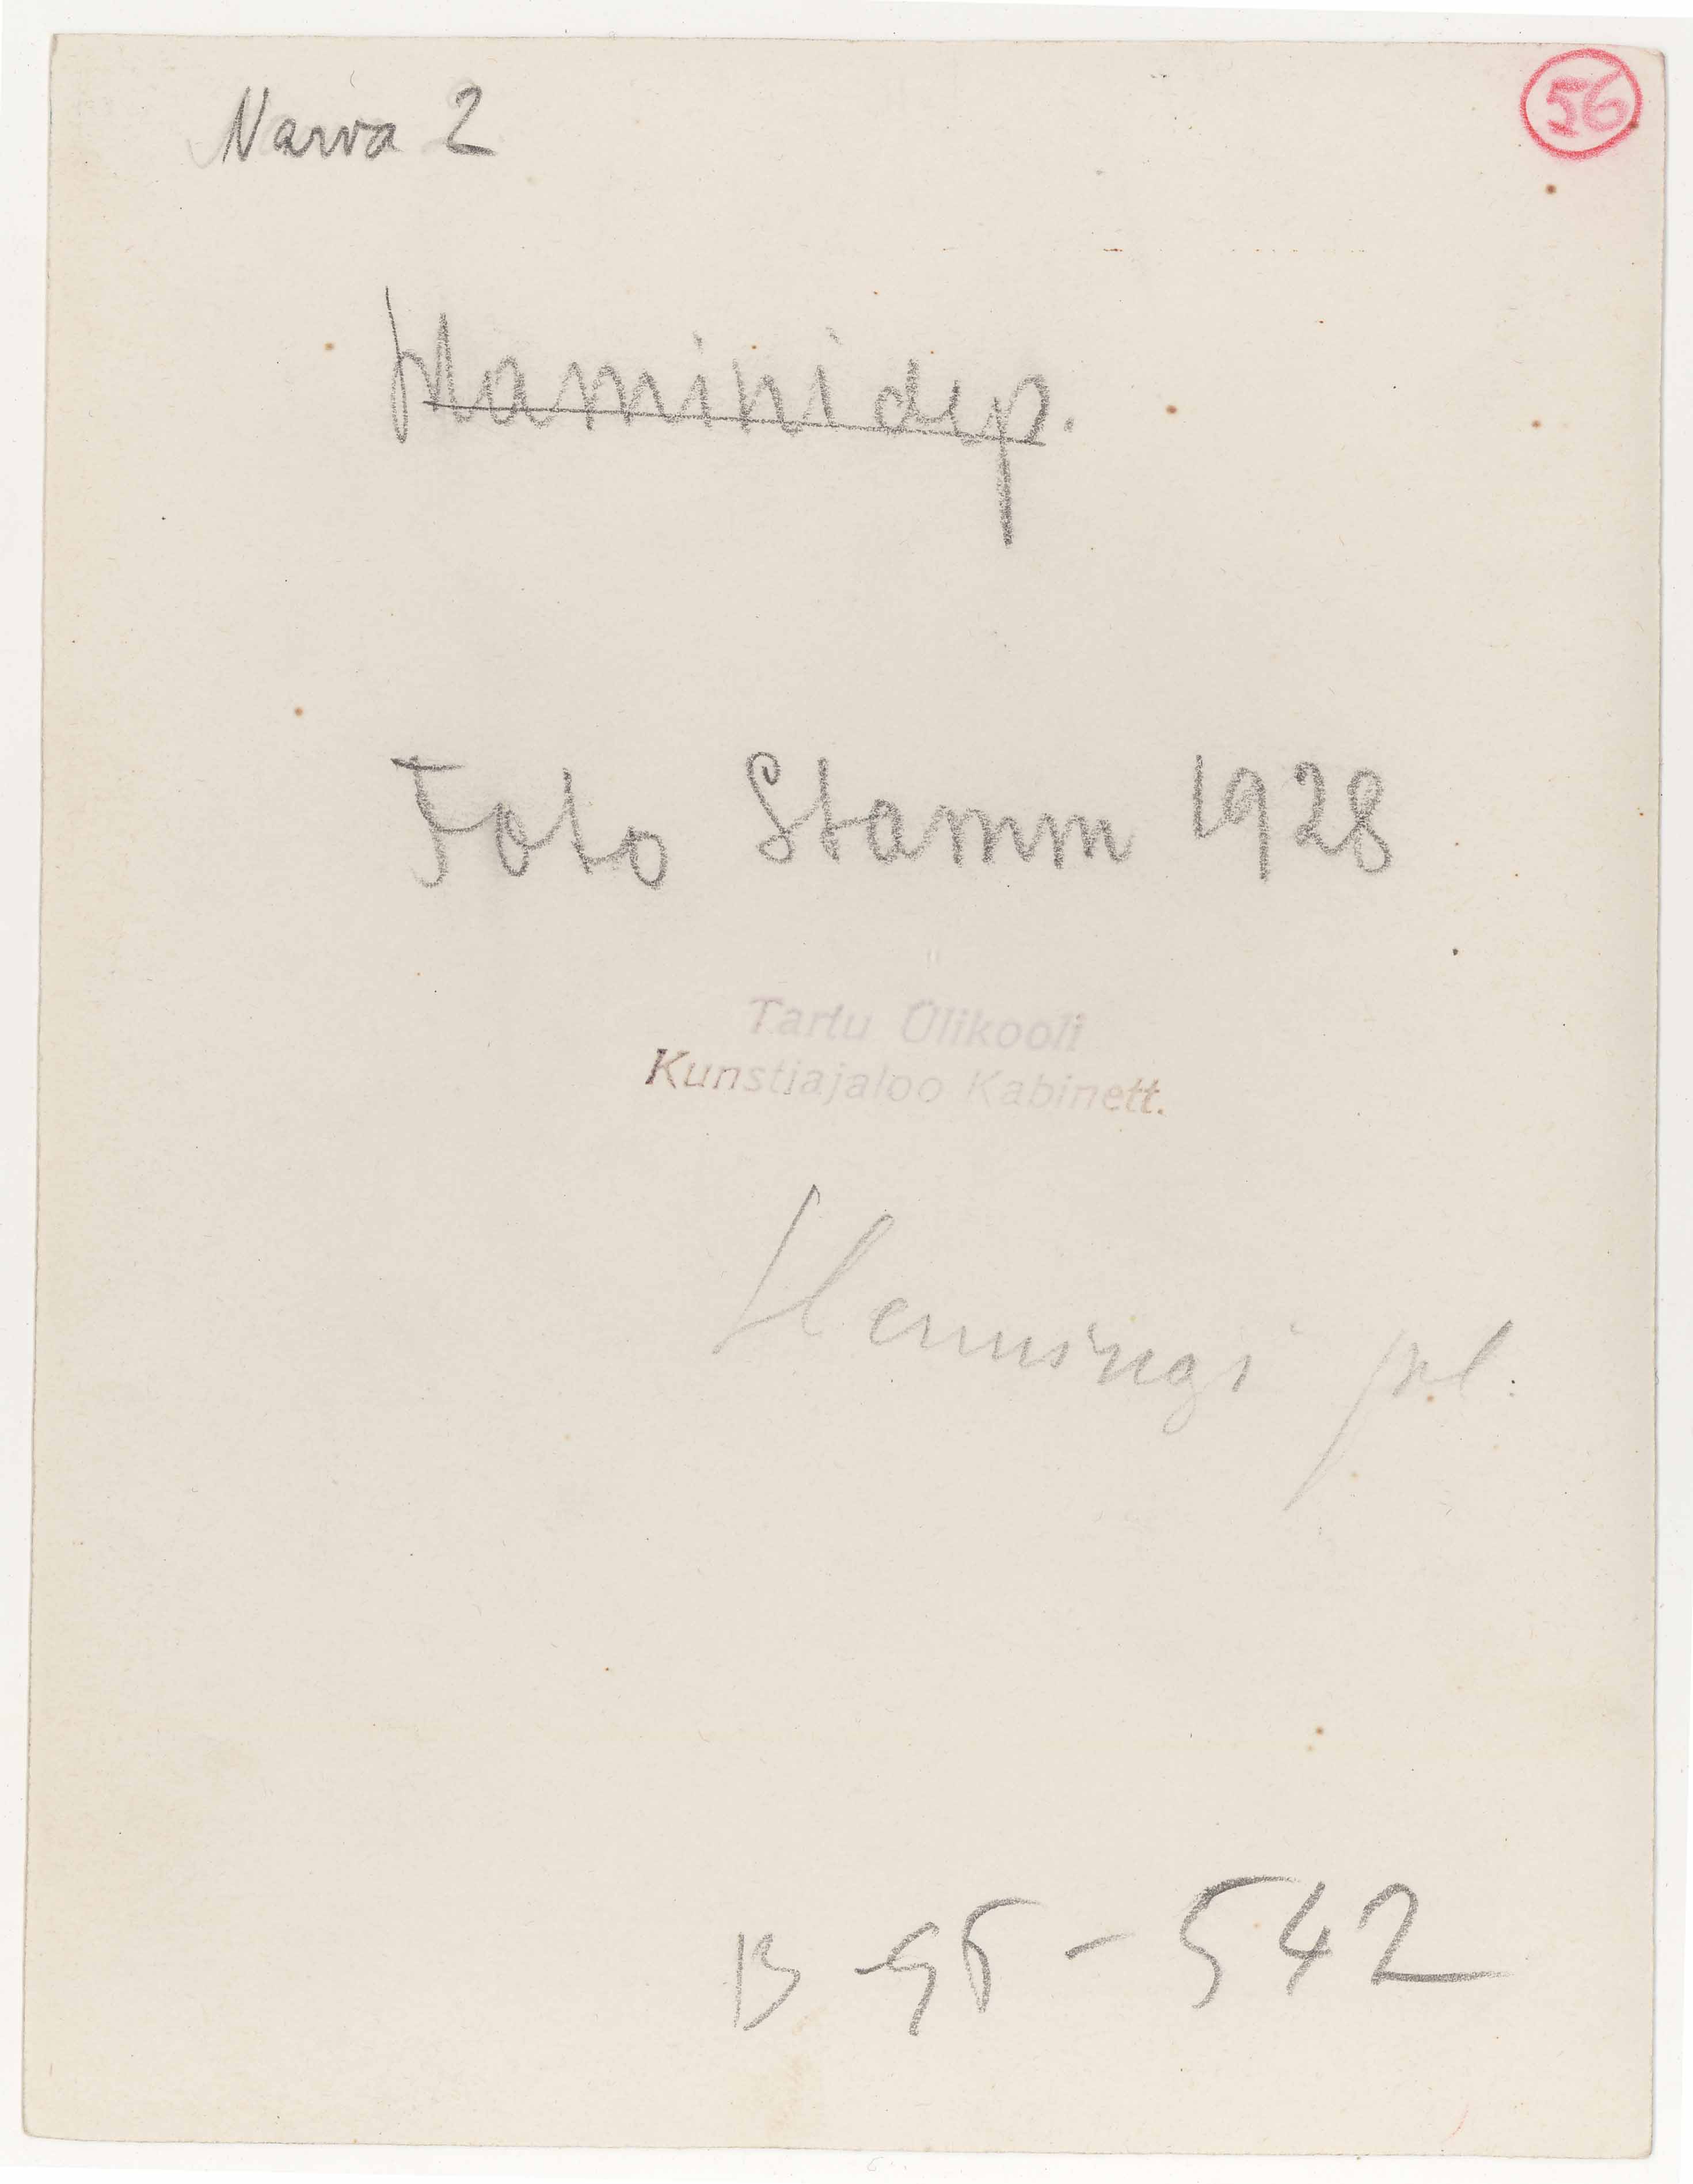 Narva 2
56
Foto Stamm 1928
Tartu Ülikooli
Kunstiajaloo Kabinett.
Henningi
B 95 - 542